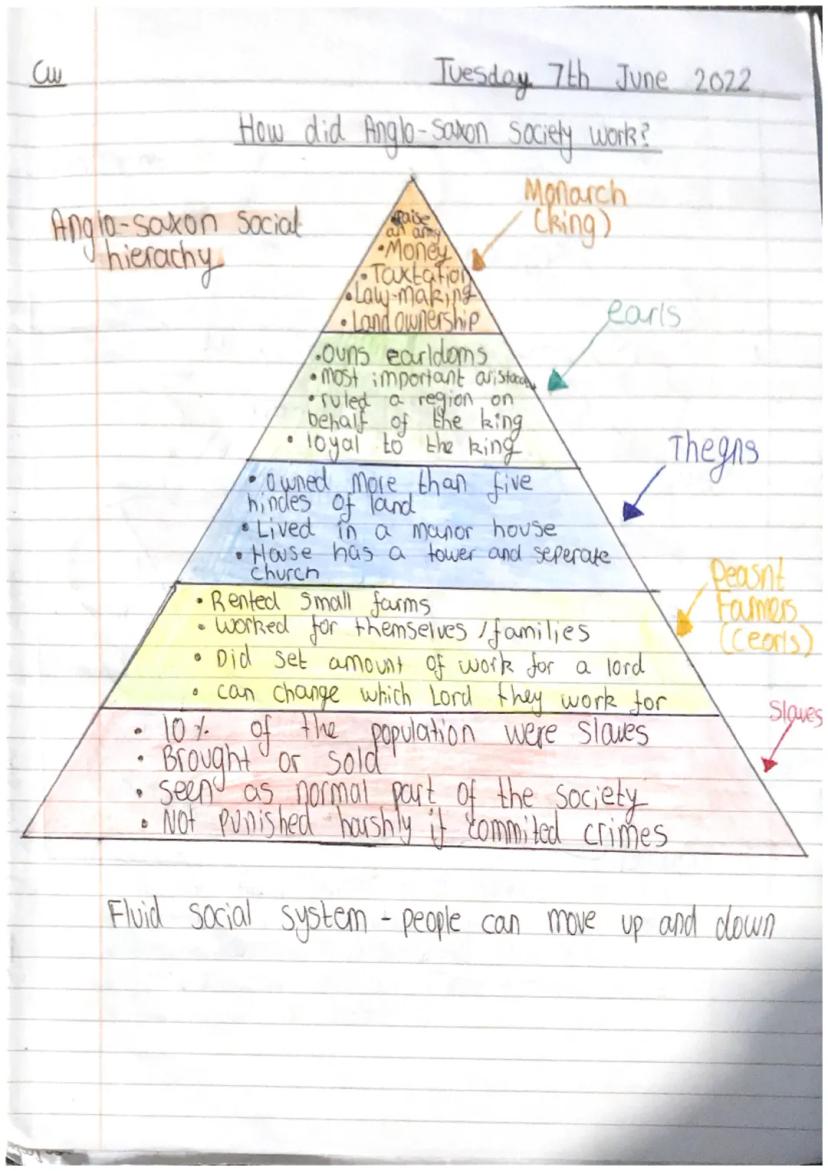 Cw
Tuesday 7th June 2022
How did Anglo-Saxon Society work?
Anglo-saxon social
hierachy
Monarch
(king)
raise
an army
• Money
• Taxtation
• Law-making
• Land ownership
earls
• owns earldoms
• most important
• ruled a region on
behalf of the king
• loyal to the king
Thegns
• owned more than five
hindes of land
• Lived in a manor house
• House has a tower and seperate
church
Peasnt
Farmers
(ceorls)
• Rented small farms
• worked for themselves / families
• Did set amount of work for a lord
• can change which Lord they work for
Slaves
• 10% of the population were slaves
• Brought or sold
• seen as normal part of the society
• Not punished harshly if commited crimes
Fluid social system - people can move up and down